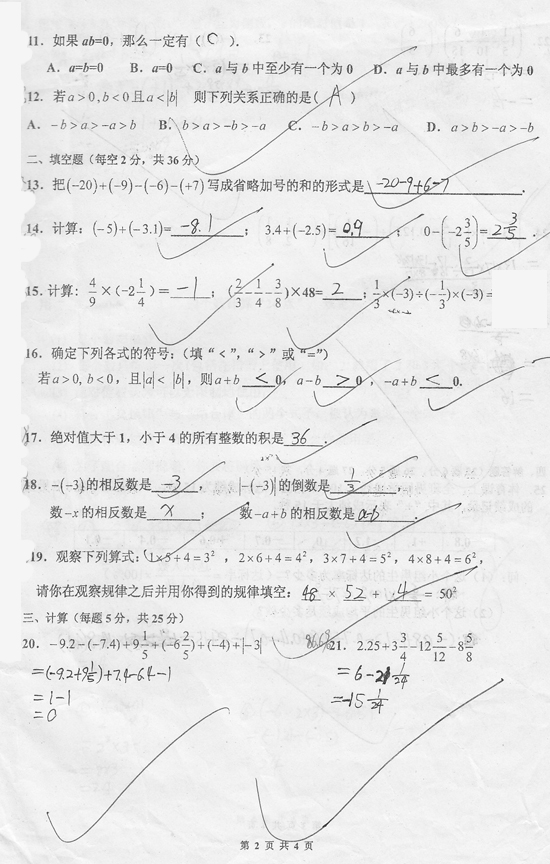 11. 如果 ab=0，那么一定有（ C ）.
A．a=b=0 B．a=0 C．a 与 b 中至少有一个为 0 D．a 与 b 中最多有一个为 0
12. 若 a＞0, b＜0 且 a＜|b| 则下列关系正确的是( A )
A．-b＞a＞-a＞b B．b＞a＞-b＞-a C．-b＞a＞b＞-a D．a＞b＞-a＞-b
二、填空题（每空2分，共36分）
13. 把(-20)+(-9)-(-6)-(+7)写成省略加号的和的形式是 -20-9+6-7 .
14. 计算：(-5)+(-3.1)= -8.1 ； 3.4+(-2.5)= 0.9 ； 0-(-2 3/5)= 2 3/5 .
15. 计算：4/9×(-2 1/4)= -1 ；(2/3-1/4-3/8)×48= 2 ；1/3×(-3)÷(-1/3)×(-3)=
16. 确定下列各式的符号：（填“＜”，“＞”或“=”）
若 a＞0, b＜0，且|a|＜|b|，则 a+b ＜ 0，a-b ＞ 0，-a+b ＜ 0.
17. 绝对值大于 1，小于 4 的所有整数的积是 36 .
18. -(-3)的相反数是 -3 ， -|-(-3)|的倒数是 1/3
数-x 的相反数是 x ； 数-a+b 的相反数是 a-b .
19. 观察下列算式：1×5+4=3²，2×6+4=4²，3×7+4=5²，4×8+4=6²，
请你在观察规律之后并用你得到的规律填空：48 × 52 + 4 = 50²
三、计算（每题5分，共25分）
20. -9.2-(-7.4)+9 1/5+(-6 2/5)+(-4)+|-3|
=(-9.2+9 1/5)+7.4-6.4-1
=1-1
=0
21. 2.25+3 3/4-12 5/12-8 5/8
=6-21 1/24
=-15 1/24
第 2 页 共 4 页